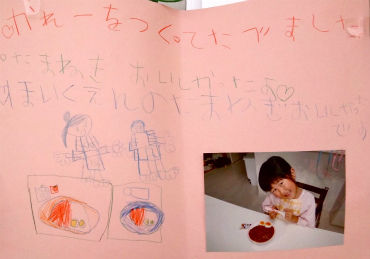 かれーをつくってたべました
たまねぎ おいしかったよ♡
のたまねぎ おいしかった
です